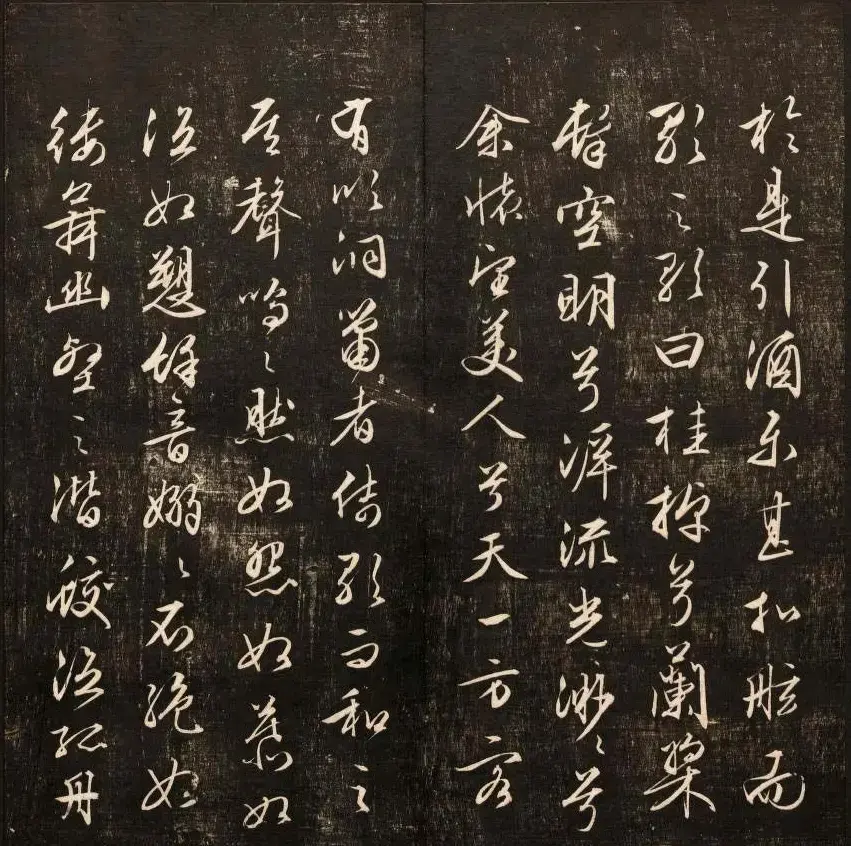 於是引酒樂甚扣舷而
歌之歌曰桂棹兮蘭槳
擊空明兮泝流光渺々兮
余懷望美人兮天一方客
有吹洞簫者倚歌而和之
其聲嗚々然如怨如慕如
泣如愬餘音嫋々不絕如
縷舞幽壑之潛蛟泣孤舟